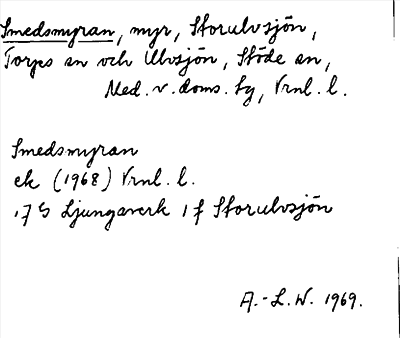 Smedsmyran, myr, Storulvsjön,
Torps sn och Ulvsjön, Stöde sn,
Med. v. doms. tg, Vrnl. l.
Smedsmyran
ek (1968) Vrnl. l.
17 G Ljungaverk 1 f Storulvsjön
A.-L. W. 1969.